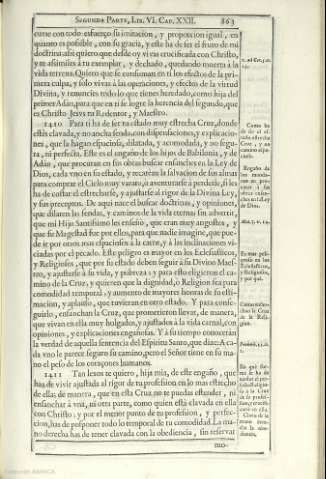 SEGUNDA PARTE, LIB. VI. CAP. XXII. 863
curne con todo esfuerço su imitacion, y proporcion igual, en
quanto es posible, con su gracia, y este ha de ser el fruto de mi
doctrina: assi quiero que desde oy viuas crucificada con Christo,
y te assimiles à tu exemplar, y dechado, quedando muerta à la
vida terrena. Quiero que se consuman en ti los efectos de la pri-
mera culpa, y solo viuas à las operaciones, y efectos de la virtud
Diuina, y renuncies todo lo que tienes heredado, como hija del
primer Adàn, para que en ti se logre la herencia del segundo, que
es Christo Iesvs tu Redentor, y Maestro.
1410 Para ti ha de ser tu estado muy estrecha Cruz, donde
estès clavada, y no ancha senda, con dispensaciones, y explicacio-
nes, que la hagan espaciosa, dilatada, y acomodada, y no segu-
ra, ni perfecta. Este es el engaño de los hijos de Babilonia, y de
Adàn, que procuran en sus obras buscar ensanches en la Ley de
Dios, cada vno en su estado, y recatean la salvacion de sus almas
para comprar el Cielo muy varato, ò aventurarse à perderle, si les
ha de costar el estrecharse, y ajustarse al rigor de la Divina Ley,
y sus preceptos. De aqui nace el buscar doctrinas, y opiniones,
que dilaten las sendas, y caminos de la vida eterna: sin advertir,
que mi Hijo Santissimo les enseñò, que eran muy angostos, y
que su Magestad fue por ellos, para que nadie imagine, que pue-
de ir por otros mas espaciosos à la carne, y à las inclinaciones vi-
ciadas por el pecado. Este peligro es mayor en los Eclesiasticos,
y Religiosos, que por su estado deben seguir à su Divino Maes-
tro, y ajustarse à su vida, y pobreza: y para esto eligieron el ca-
mino de la Cruz, y quieren que la dignidad, ò Religion sea para
comodidad temporal, y aumento de mayores honras de su esti-
macion, y aplauso, que tuvieran en otro estado. Y para conse-
guirlo, ensanchan la Cruz, que prometieron llevar, de manera,
que vivan en ella muy holgados, y ajustados à la vida carnal, con
opiniones, y explicaciones engañosas. Y à su tiempo conoceràn
la verdad de aquella sentencia del Espiritu Santo, que dize: A ca-
da vno le parece seguro su camino, pero el Señor tiene en su ma-
no el peso de los coraçones humanos.
1411 Tan lexos te quiero, hija mia, de este engaño, que
has de vivir ajustada al rigor de tu profession en lo mas estrecho
de ella; de manera, que en esta Cruz no te puedas estender, ni
ensanchar à vna, ni otra parte, como quien està clavada en ella
con Christo: y por el menor punto de tu profession, y perfec-
cion, has de posponer todo lo temporal de tu comodidad. La ma-
no derecha has de tener clavada con la obediencia, sin reservar
mo-
Como ha
de ser el es-
tado estrecha
Cruz, y no
camino espa-
cioso.
Engaño de
los munda-
nos en pro-
curar à sus
obras ensan-
ches en la Ley
de Dios.
Mat. 7. v. 14.
Es mas peli-
groso en los
Eclesiasticos,
y Religiosos,
y por què.
Como ensan-
chan la Cruz
de la Reli-
gion.